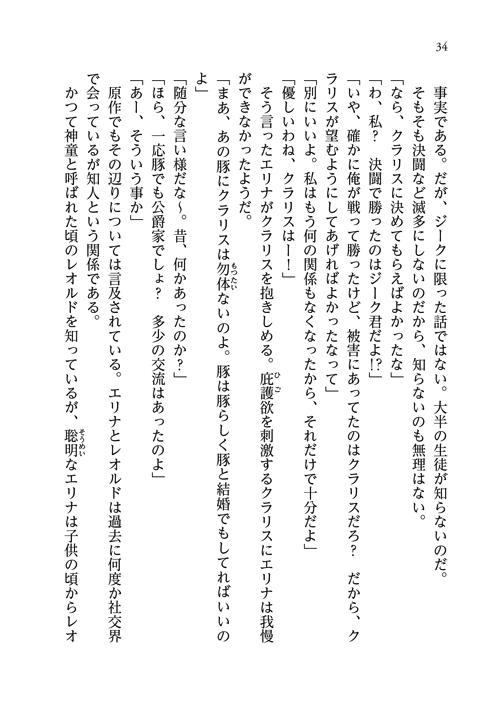 34
事実である。だが、ジークに限った話ではない。大半の生徒が知らないのだ。
そもそも決闘など滅多にしないのだから、知らないのも無理はない。
「なら、クラリスに決めてもらえばよかったな」
「わ、私？　決闘で勝ったのはジーク君だよ!?」
「いや、確かに俺が戦って勝ったけど、被害にあってたのはクラリスだろ？　だから、ク
ラリスが望むようにしてあげればよかったなって」
「別にいいよ。私はもう何の関係もなくなったから、それだけで十分だよ」
「優しいわね、クラリスはー！」
そう言ったエリナがクラリスを抱きしめる。庇護欲を刺激するクラリスにエリナは我慢
ができなかったようだ。
「まあ、あの豚にクラリスは勿体ないのよ。豚は豚らしく豚と結婚でもしてればいいの
よ」
「随分な言い様だな～。昔、何かあったのか？」
「ほら、一応豚でも公爵家でしょ？　多少の交流はあったのよ」
「あー、そういう事か」
原作でもその辺りについては言及されている。エリナとレオルドは過去に何度か社交界
で会っているが知人という関係である。
かつて神童と呼ばれた頃のレオルドを知っているが、聡明なエリナは子供の頃からレオ